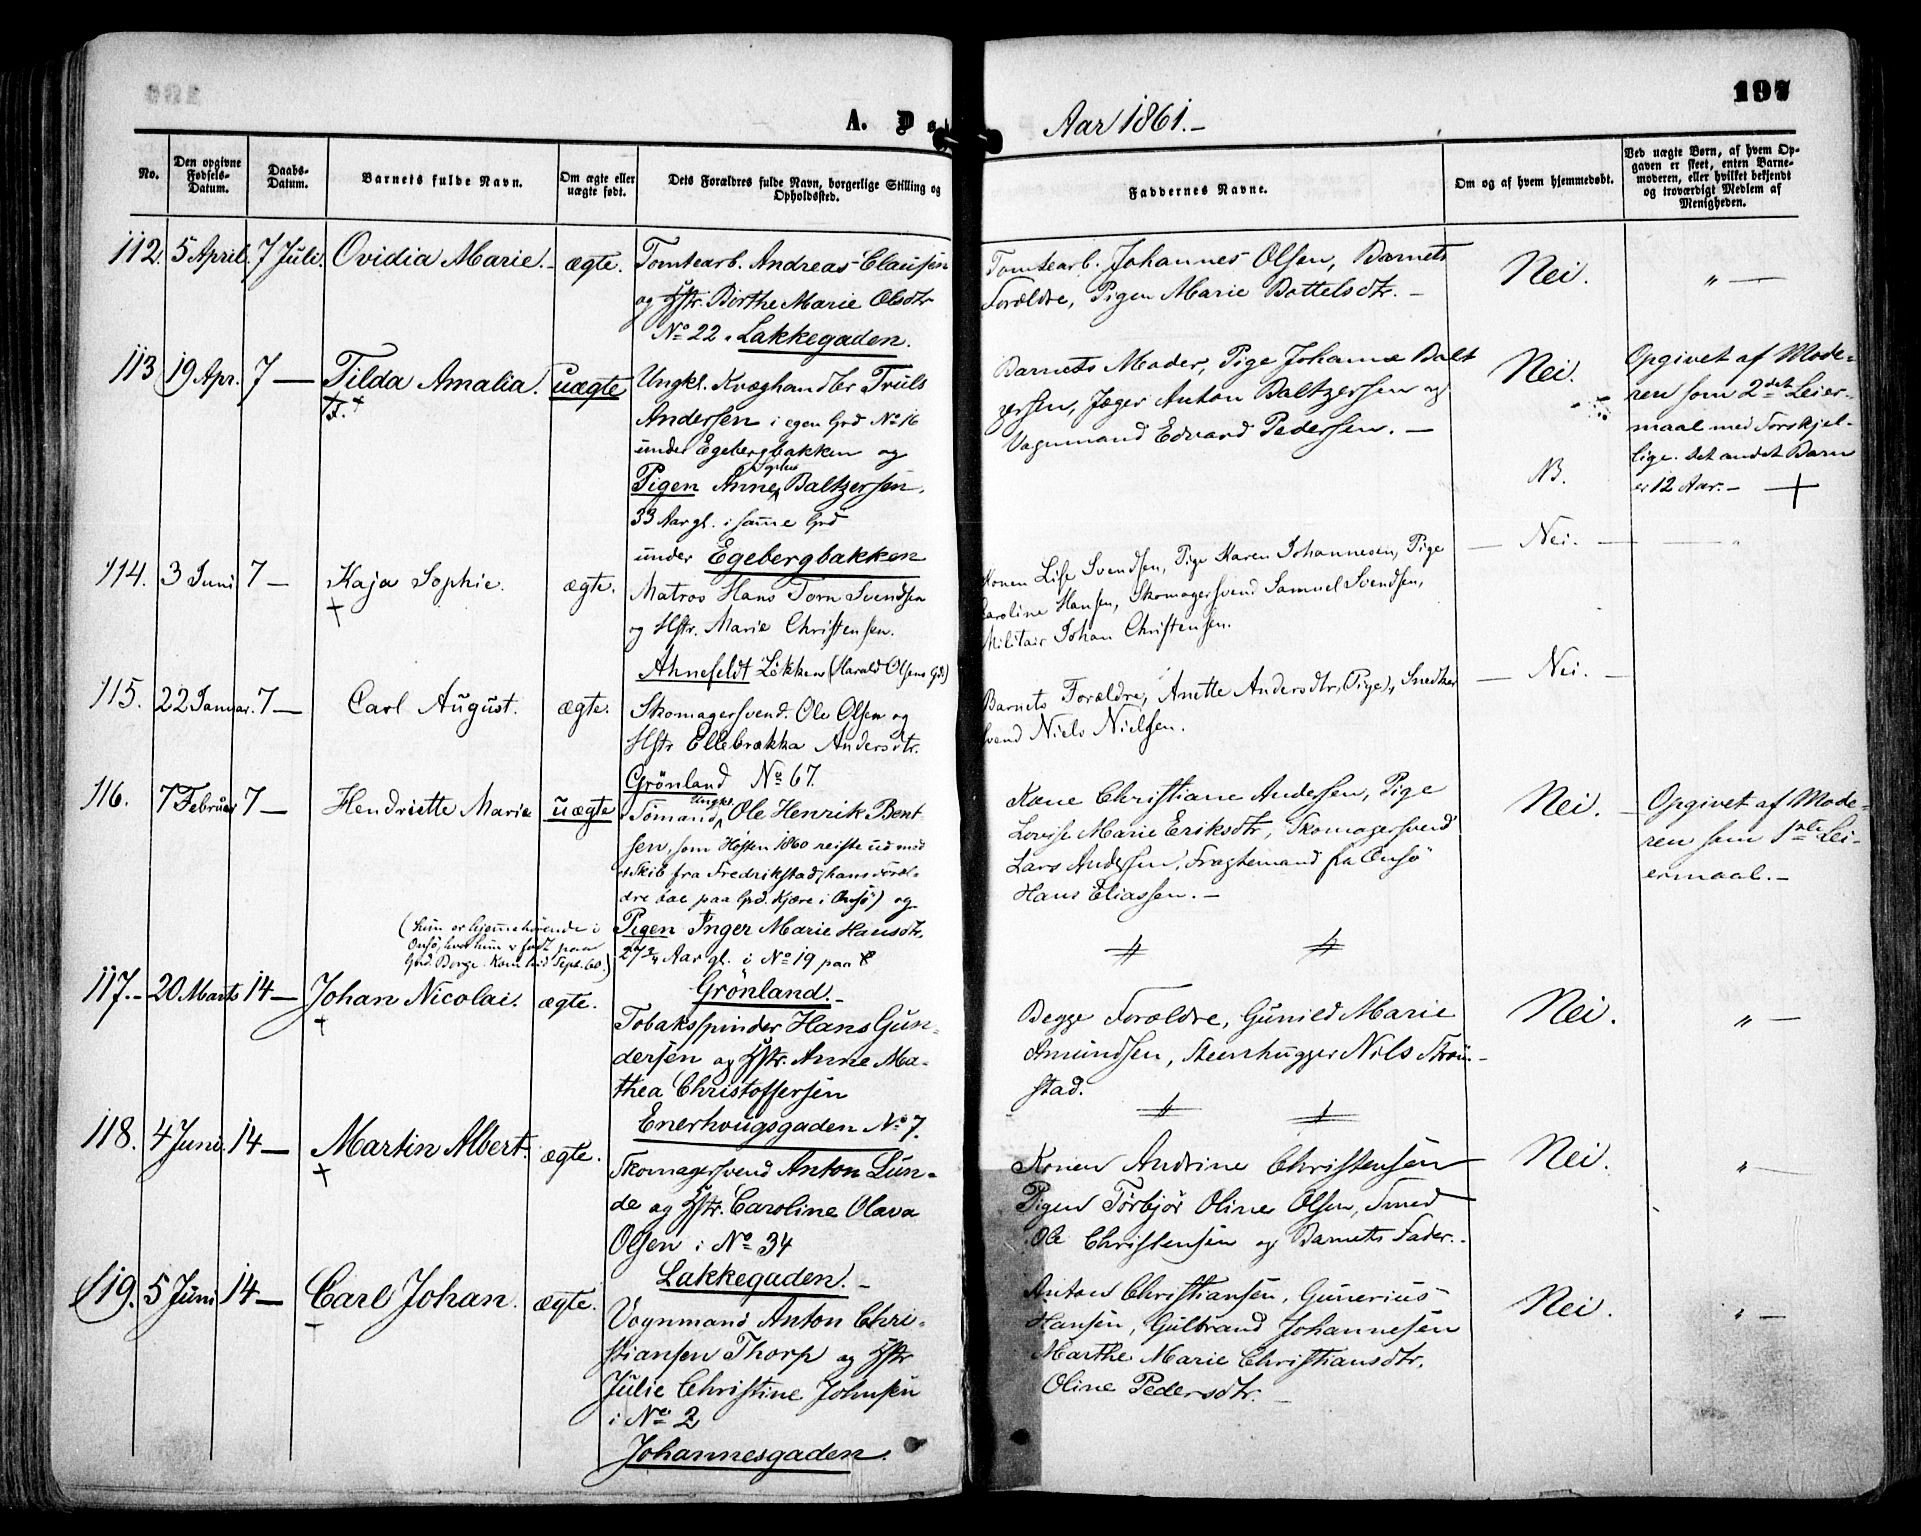 197
A. Dø
Aar 1861.-
No.
Den opgivne
Fødsels-
Datum.
Daabs-
Datum.
Barnets fulde Navn.
Om ægte eller
uægte født.
Dets Forældres fulde Navn, borgerlige Stilling og
Opholdssted.
Faddernes Navne.
Om og af hvem hjemmedøbt.
Ved uægte Børn, af hvem Op-
gaven er skeet, enten Barne-
moderen, eller hvilket bekjendt
og troværdigt Medlem af
Menigheden.
112. 5 April. 7 Juli. Ovidia Marie. - ægte.
Tomtearb. Andreas Clausen
og Hstr. Birthe Marie Olsdtr
No 22. Lakkegaden.
Tomtearb. Johannes Olsen, Barnets
Forældre, Pigen Marie Bottelsdtr. -
Nei. „ -
113 19 Apr. 7 - Tilda Amalia. uægte
Ungkl. Kvæghandler Truls
Andersen i egen Grd No 16
under Egebergbakken og
Pigen Anne Sophie Baltzersen.
33 Aar gl. i samme Grd
under Egebergbakken
Barnets Moder, Pige Johanne Balt
zersen, Jæger Anton Baltzersen og
Vognmand Edvard Pedersen. -
Nei.
Opgivet af Mode-
ren som 2det Leier-
maal med Forskjel-
lige. Det andet Barn
er 12 Aar. -
114. 3 Juni 7 - Kaja Sophie. ægte.
Matros Hans Torn Svendsen
og Hstr. Marie Christensen.
Ahnefeldt Løkken (Harald Olsens Gd.)
Konen Lise Svendsen, Pige Karen Johannesen, Pige
Caroline Hansen, Skomagersvend Samuel Svendsen,
Militair Johan Christensen.
- Nei. -
115. 22 Januar. 7 - Carl August. ægte.
Skomagersvend. Ole Olsen og
Hstr Ellebrækka Andersdtr.
Grönland No 67.
Barnets Forældre, Anette Andersdtr, (Pige), Snedker
svend Niels Nielsen.
- Nei. -
116. 7 Februar 7 - Hendriette Marie uægte
Sömand, Ungkl. Ole Henrik Bent
sen, som Høsten 1860 reiste ud med
et Skib fra Fredrikstad, (hans Foræl-
dre boe paa Grd. Kjære i Onsö) og
Pigen Inger Marie Hansdtr,
27 3/4 Aar gl. i No 19 paa
Grönland. -
(hun er hjemmehørende i
Onsö, hvor hun er født paa
Grd. Borge. Kom hid Sept. 60.)
Kone Christiane Andersen, Pige
Lovise Marie Eriksdtr, Skomagersvend
Lars Andersen, Fragtemand fra Onsö
Hans Eliassen. -
Nei. -
Opgivet af Mode-
ren som 1ste Lei-
ermaal. -
117. - 20 Marts 14 - Johan Nicolai. ægte.
Tobaksspinder Hans Gun-
dersen og Hstr. Anne Ma-
thea Christoffersen
Enerhougsgaden No 7.
Begge Forældre, Gunild Marie
Amundsen, Steenhugger Nils Strøm-
stad.
Nei. „ -
118. 4 Juni. 14 - Martin Albert. ægte.
Skomagersvend Anton Lun-
de og Hstr. Caroline Olava
Olsen i No 34
Lakkegaden. -
Konen Andrine Christensen
Pigen Torbjør Oline Olsen, Smed
Ole Christensen og Barnets Fader. -
Nei. „ -
119. 5 Juni 14 - Carl Johan. ægte.
Vognmand Anton Chri-
stiansen Thorp og Hstr
Julie Christine Johnsen
i No 2
Johannesgaden.
Anton Christiansen, Gunerius
Hansen, Gulbrand Johannesen
Marthe Marie Christiansdtr,
Oline Pedersdtr. -
Nei. „ -